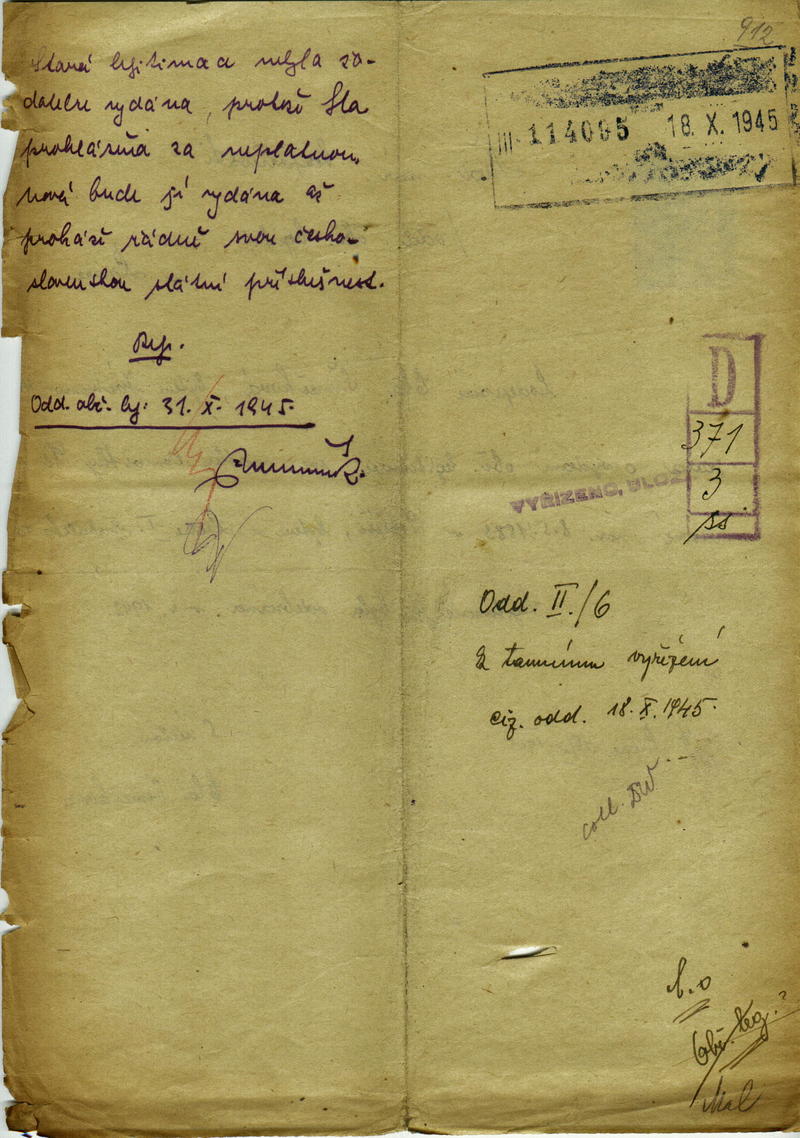 Stará legitimace nebyla žа-
datelce vydána, protože bla
prohlášena za neplatnou,
nová bude jí vydána až
prokáže řádně svou česko-
slovenskou státní příslušnost.
Odd. obč. leg. 31. X. 1945.
912
III-114095 18. X. 1945
D
371
3
ss
VYŘÍZENO,
Odd. II./6
K tamnímu vyřízení
ciz. odd. 18. X. 1945.
coll.
Obč. leg.